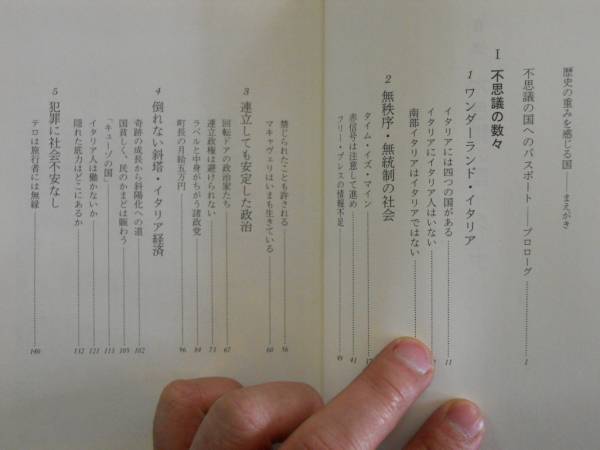 歴史の重みを感じる国——まえがき
不思議の国へのパスポート——プロローグ 1
I 不思議の数々
1 ワンダーランド・イタリア
イタリアには四つの国がある 11
イタリアにイタリア人はいない
南部イタリアはイタリアではない
2 無秩序・無統制の社会
タイム・イズ・マイン
赤信号は注意して進め 41
フリー・プレスの情報不足 49
3 連立しても安定した政治
禁じられたことも許される 56
マキャヴェリはいまも生きている 60
回転ドアの政治家たち 67
連立政権は避けられない 73
ラベルと中身がちがう諸政党 84
町長の月給五万円 96
4 倒れない斜塔・イタリア経済
奇跡の成長から斜陽化への道 102
国貧しく、民のかまどは賑わう 105
「キューゾの国」 113
イタリア人は働かないか 121
隠れた底力はどこにあるか 132
5 犯罪に社会不安なし
テロは旅行者には無縁 140